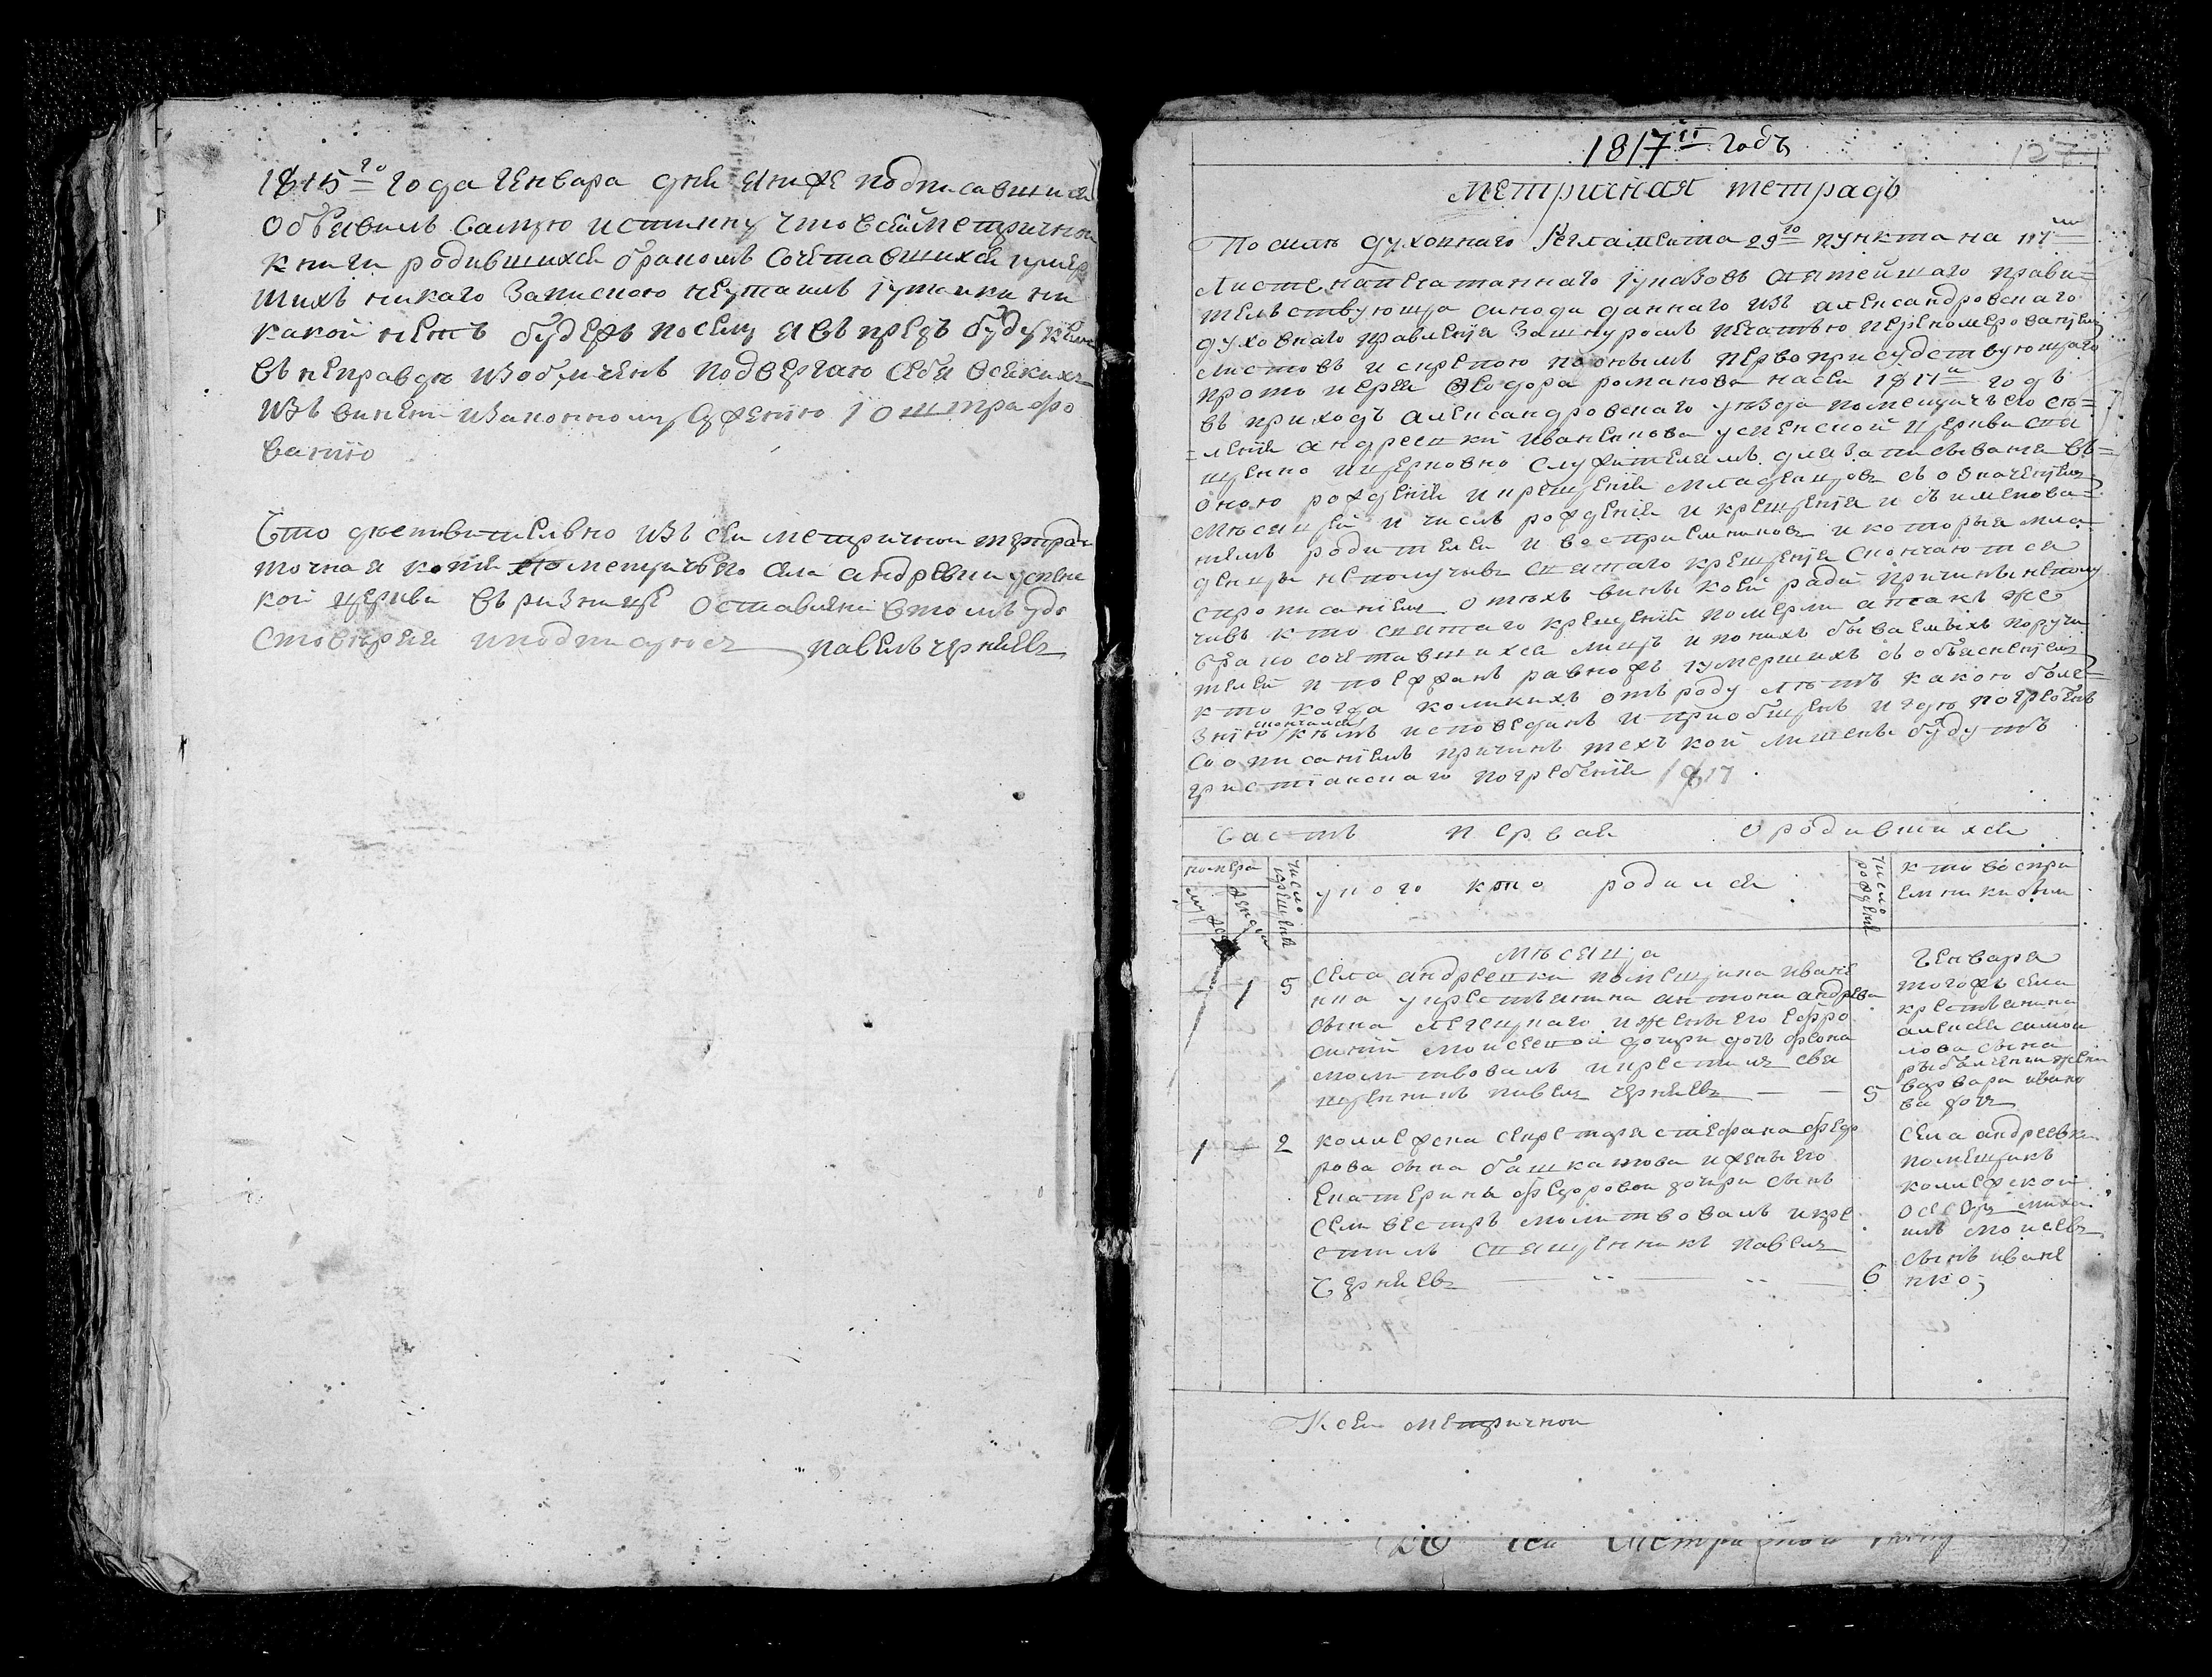 1815го года Генвара дня я ниже подписавшися
объявилъ самую истинну что в сей метричной
книги родившихся браком сочетавшихся умер
шихъ никаго Записною неутаилъ и утайки ни
какой нетъ будежъ посему я въ предь буду кемъ
въ неправде изобличенъ подвергаю себя всякихъ
изъ винения изаконному суждению i оштрафо
ванию
Что действительно изъ сей метричной тетради
точная копия метричъ его села андревки успен
кой церкви въ ризнице оставлена в томъ удо
стоверяя и подписуюсь павелъ чернявъ
1817й годъ
127
Метричная тетрадь
По силе духовнаго Регламента 29го пункта на 117м
Листе напечатаннаго i указовъ святейшаго прави=
тельствующа синода даннаго изъ александровскаго
духовнаго правления За шнуромъ печатью перенумерованием
листовъ и скрепою по онымъ первоприсудствующаго
протоиерея Феодора романова на сей 1817й годъ
въ приходъ александровскаго уезда помещичъ его се=
ления андреевки Иваненкова успенской церкви свя
щенно и церковно служителямъ для Записывания въ=
оною рождения и крещения младенцовъ съ означениемъ
месяцей и числъ рождения и крещения и съ именова=
ниемъ родителей и восприемниковъ и которыя мла
денцы не получивъ святаго крещения скончаются
с прописаниемъ отехъ вины коей ради причины неполу
чивъ кто святаго крещения померли а также
брако сочетавшихся лицъ и по нихъ бываемыхъ поручи
телей и поезжанъ равножъ умершихъ съ объяснением
кто когда коликихъ отъ роду летъ какою боле=
Знiю скончался кемъ исповеданъ и приобщенъ и где погребенъ
со описаниемъ причинъ техъ кои лишены будутъ
християнскаго погребения 1817
Часть первая о родившихся
номера
муж
женска
число крещения
у кого кто родился
число рождения
кто воспри
емники были
месяца
Генваря
1 5 села андреевки помещика иване
нка у крестьянина антона андреева
сына легецкаго и жены его ефро
синий моисеевой дочери дочь фекла
молитвовалъ и крестилъ свя
щенникъ павелъ чернявъ 5
тогожъ села
крестьянина
алексея самой
лова сына
рыбалченки жена
варвара ивано
ва дочь
1 2 колежска секретаря стефана федо
рова сына башкатова и жены его
Екатерины федоровой дочери сынъ
селивестръ молитвовалъ и кре
стилъ священникъ павелъ
Чернявъ 6
села андреевки
помещикъ
колежской
осесоръ михаи
илъ моисеевъ
сынъ иване
нко;
К сей метричной
Ко сей метричной книгу